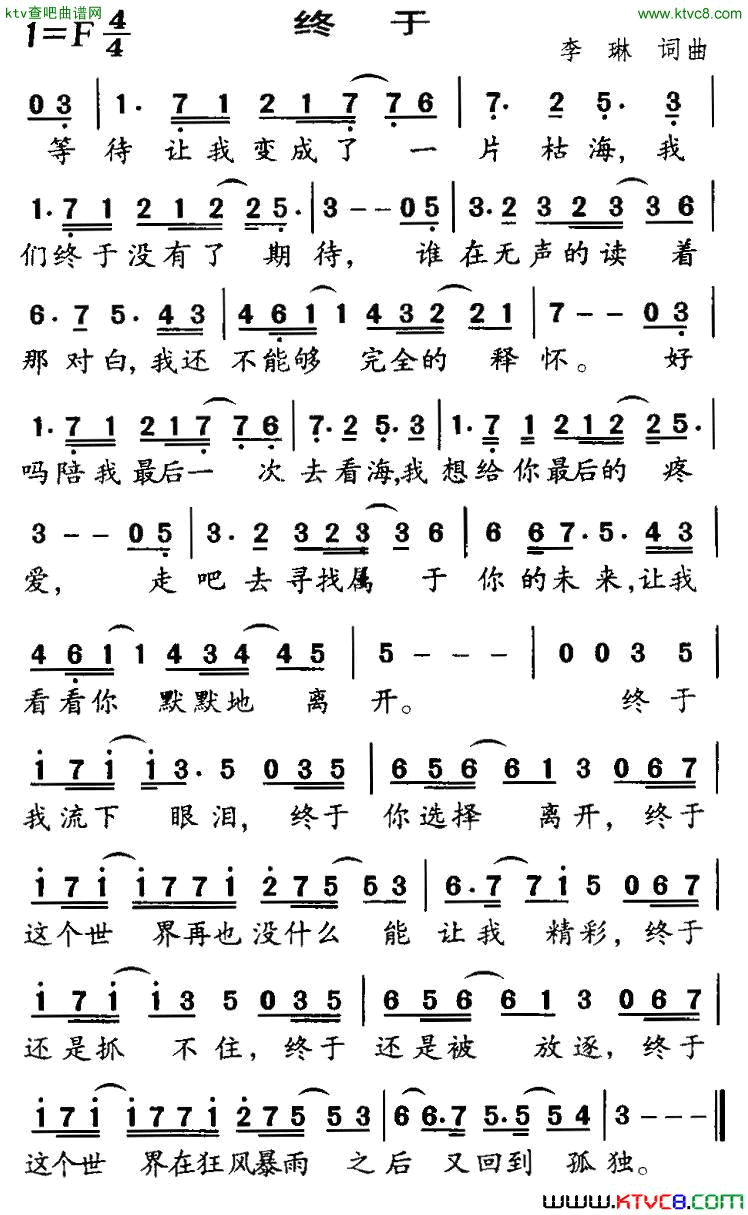 ktv查吧曲谱网
www.ktvc8.com
终 于
1=F 4/4
李 琳 词曲
0 3 | 1. 7 1 2 1 7 7 6 | 7. 2 5. 3 |
等待让我变成了 一 片 枯海,我
1. 7 1 2 1 2 2 5. | 3 - - 0 5 | 3. 2 3 2 3 3 6 |
们终于没有了 期 待, 谁 在无声的读 着
6. 7 5. 4 3 | 4 6 1 1 4 3 2 2 1 | 7 - - 0 3 |
那 对 白,我还 不能够 完全的 释 怀。 好
1. 7 1 2 1 7 7 6 | 7. 2 5. 3 | 1. 7 1 2 1 2 2 5. |
吗陪我最后一 次 去看海,我 想给你最后的 疼
3 - - 0 5 | 3. 2 3 2 3 3 6 | 6 6 7. 5. 4 3 |
爱, 走 吧 去 寻找属 于 你 的 未来,让我
4 6 1 1 4 3 4 4 5 | 5 - - - | 0 0 3 5 |
看看你 默默地 离 开。 终 于
1 7 1 1 3. 5 0 3 5 | 6 5 6 6 1 3 0 6 7 |
我流下 眼 泪, 终于 你选择 离 开, 终于
1 7 1 1 7 7 1 2 7 5 5 3 | 6. 7 7 1 5 0 6 7 |
这个世 界再也没什么 能 让我 精彩, 终于
1 7 1 1 3 5 0 3 5 | 6 5 6 6 1 3 0 6 7 |
还是抓 不 住, 终于 还是被 放 逐, 终于
1 7 1 1 7 7 1 2 7 5 5 3 | 6 6. 7 5. 5 5 4 | 3 - - - ‖
这个世 界在狂风暴雨 之后 又回到 孤独。
www.KTVC8.com